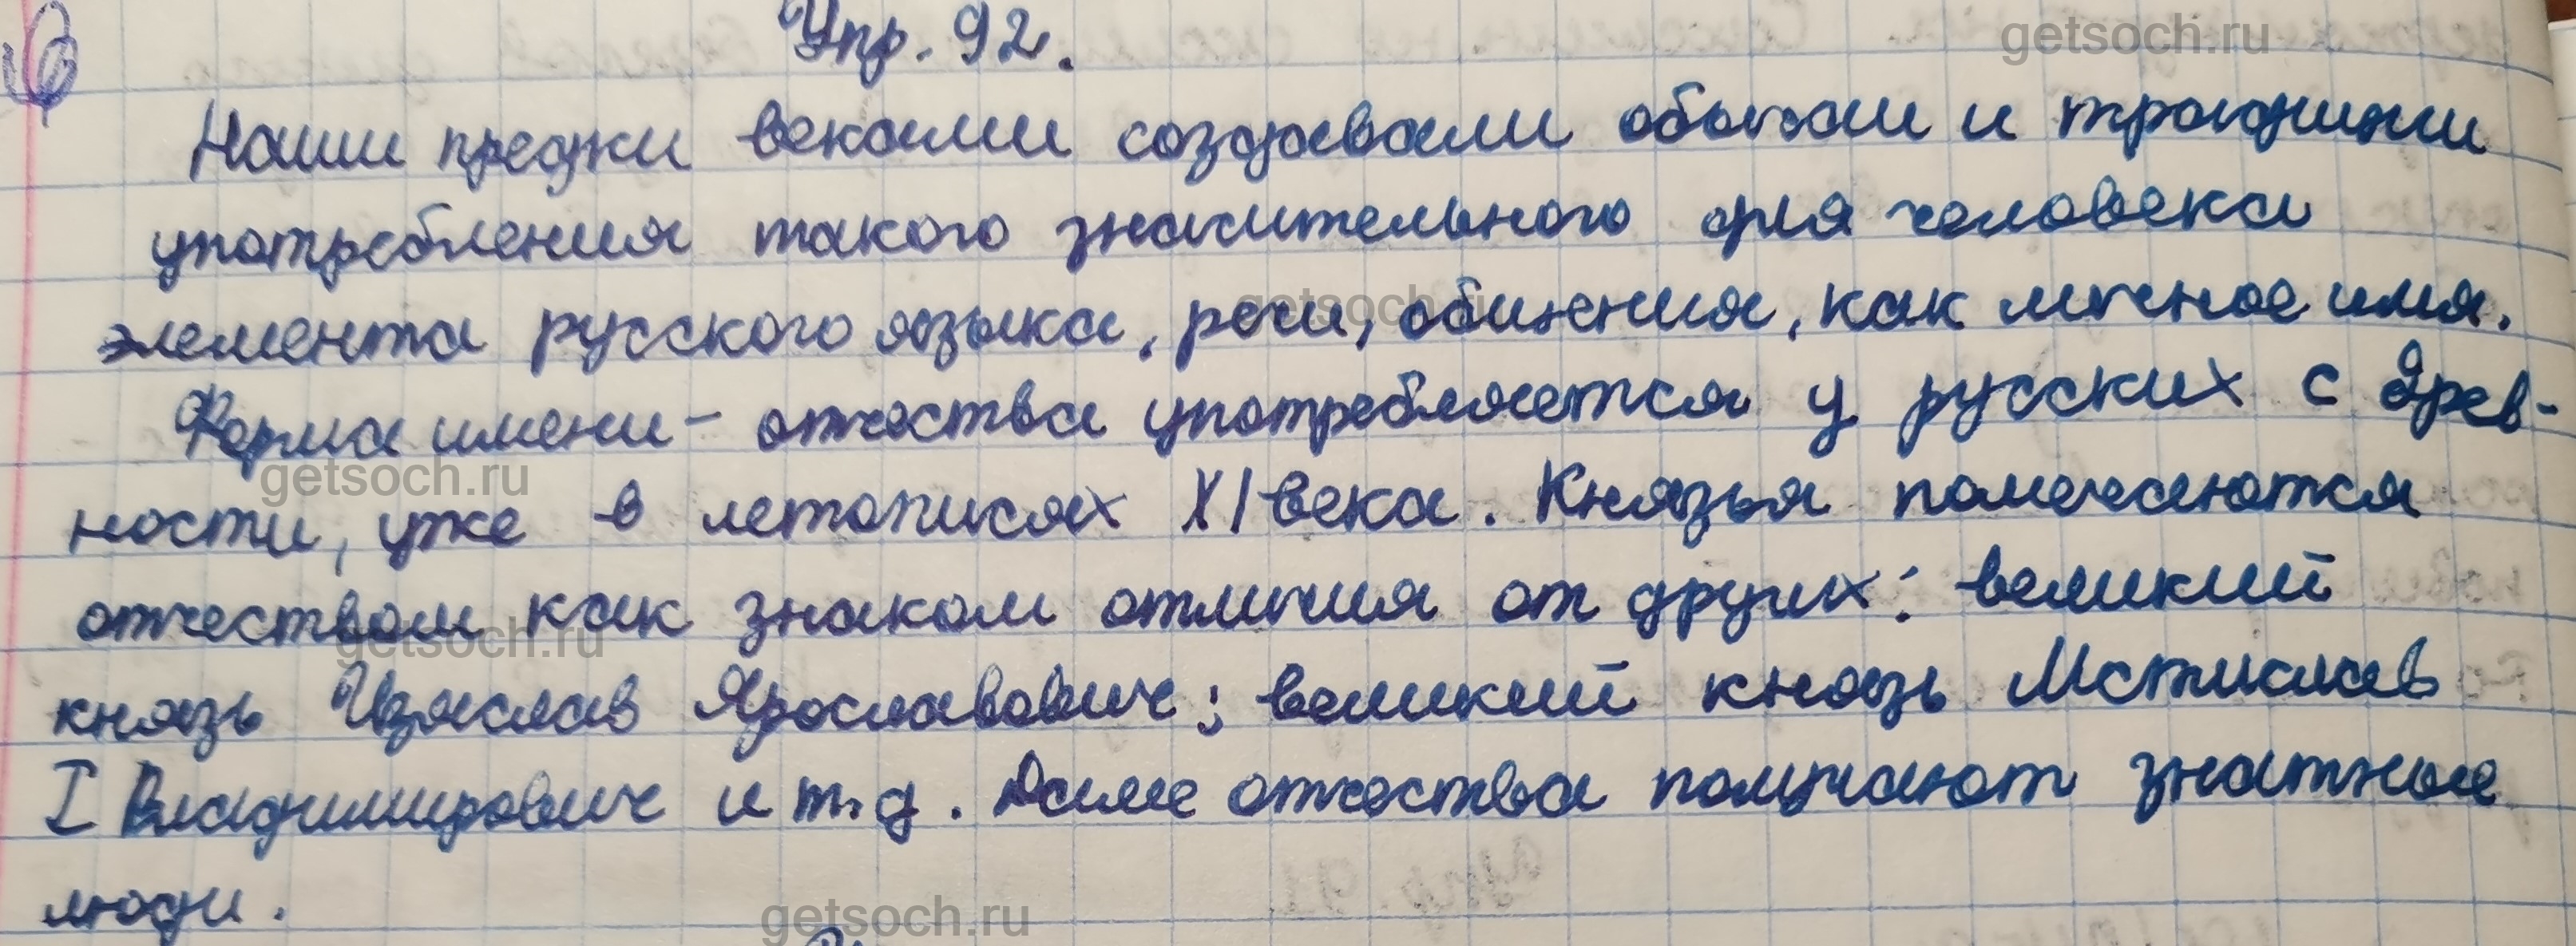 getsoch.ru
Упр. 92.
Наши предки веками создавали обычаи и традиции
употребления такого значительного для человека
getsoch.ru
элемента русского языка, речи, общения, как личное имя.
Форма имени - отчества употребляется у русских с древ-
getsoch.ru
ности, уже в летописях XI века. Князья помечаются
отчеством как знаком отличия от других: великий
getsoch.ru
князь Изяслав Ярославович; великий князь Мстислав
I Владимирович и т.д. Далее отчества получают знатные
люди.
getsoch.ru